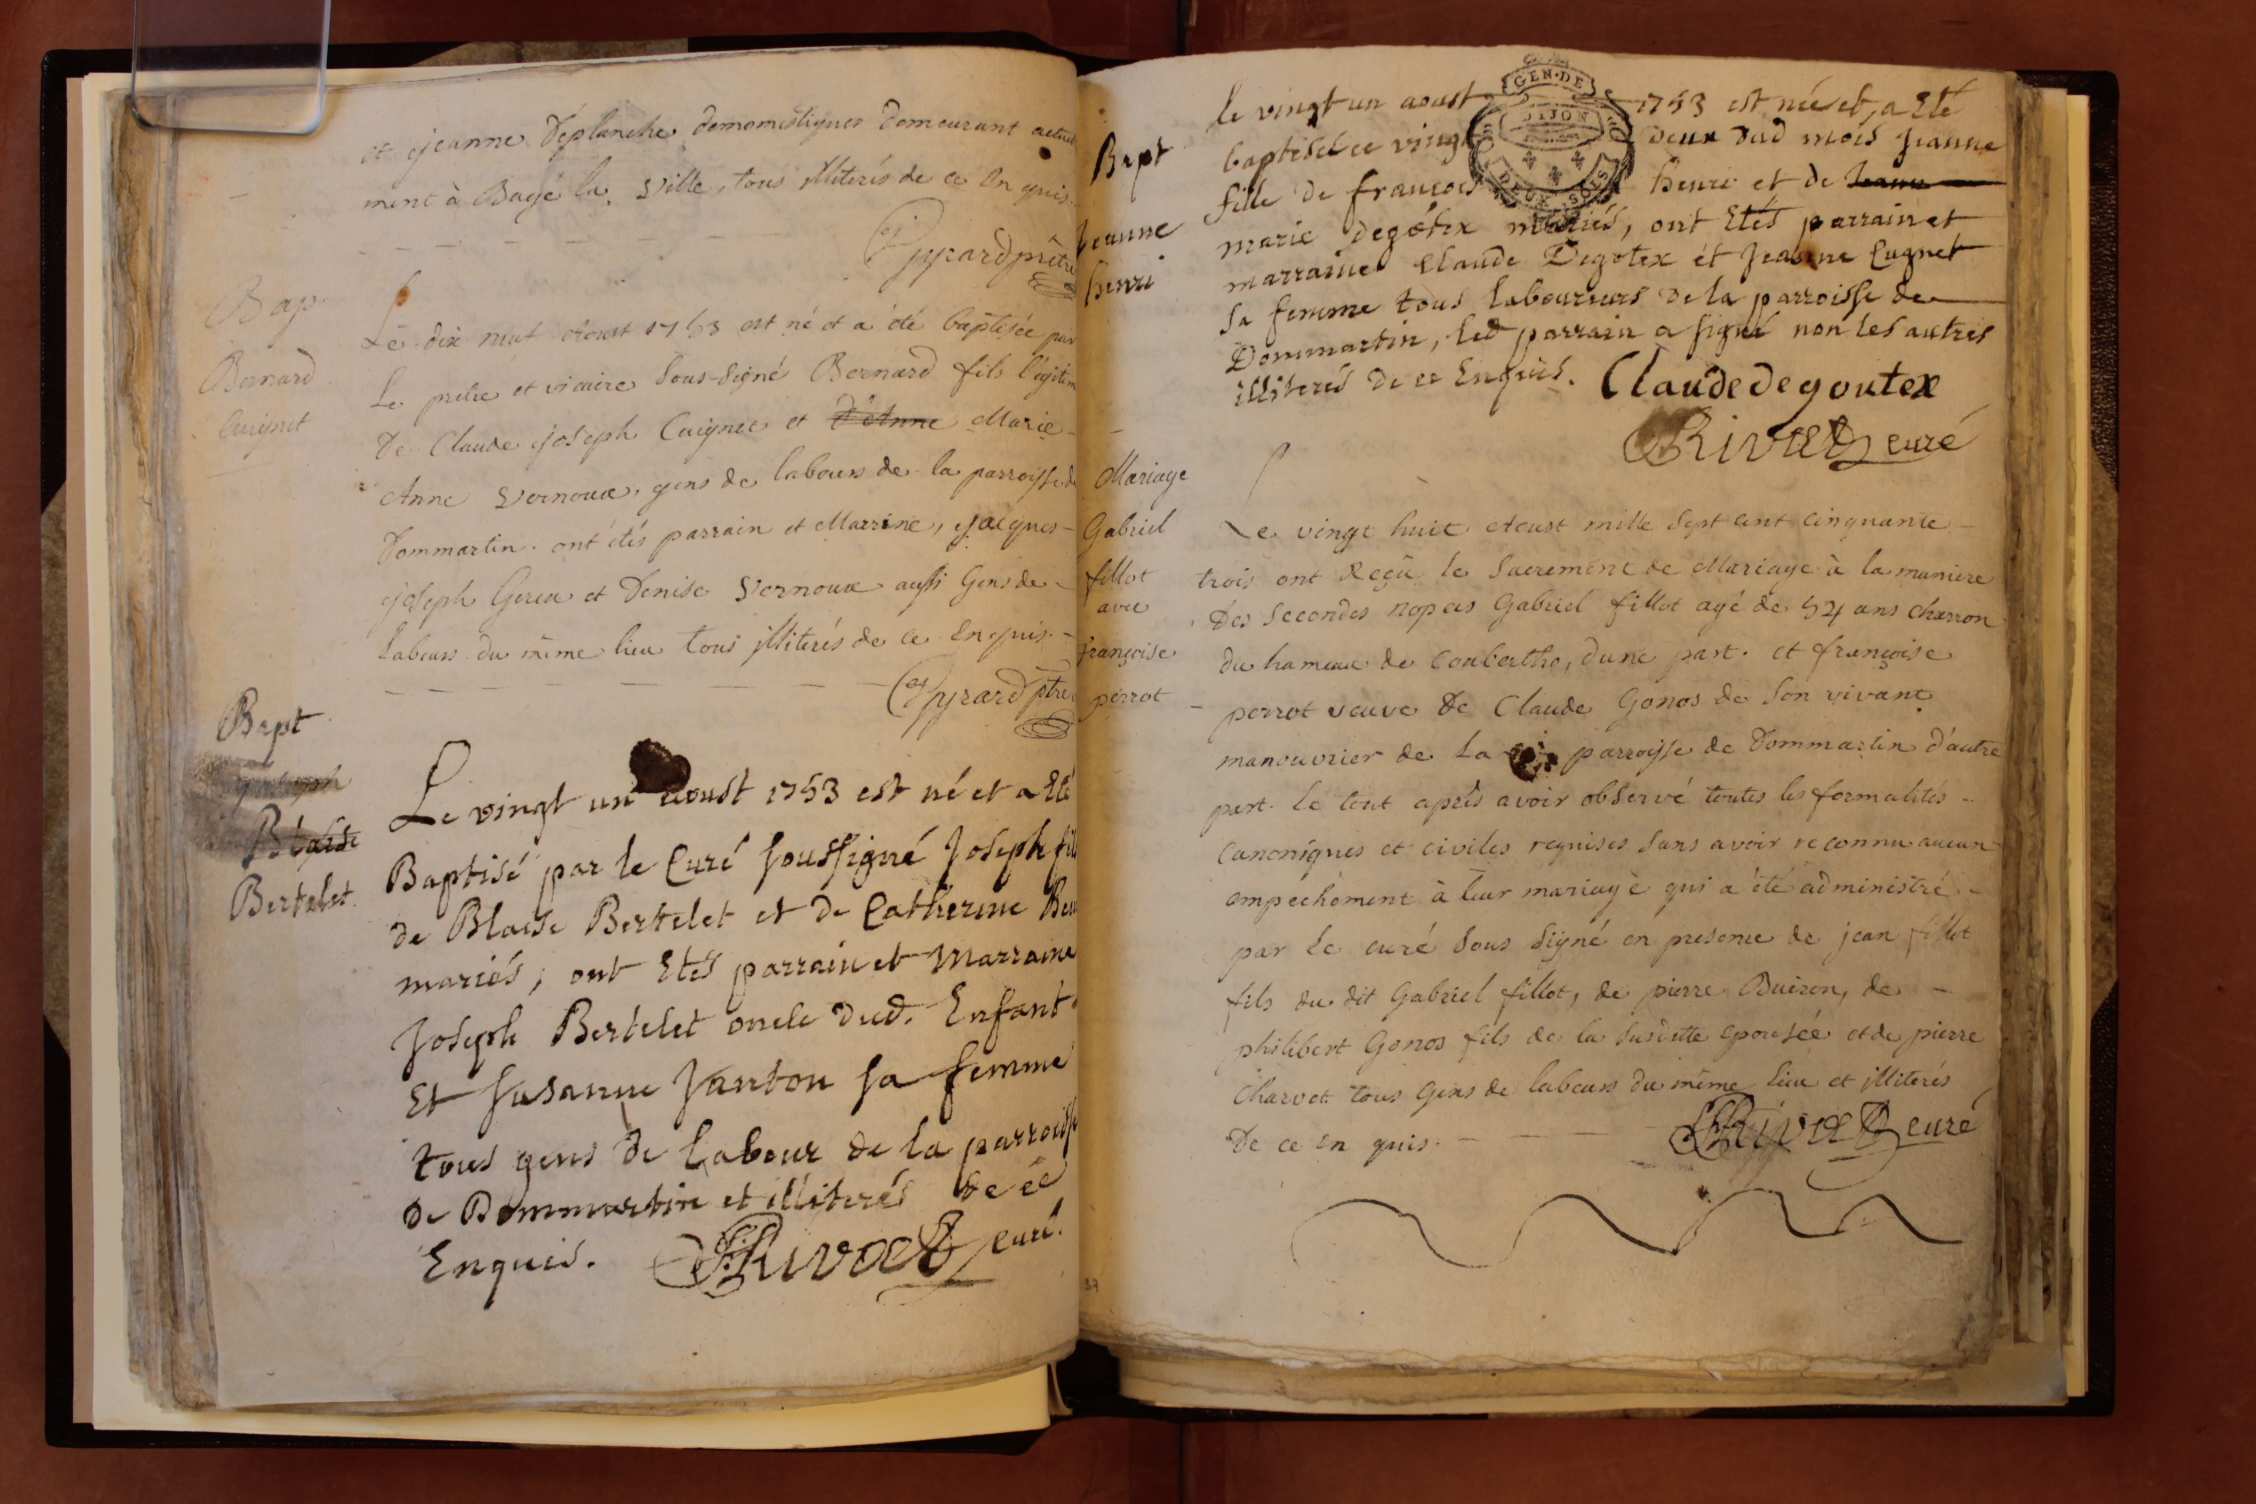 et jeanne Déplanche domomestiques demeurant actuel
ment à Bagé la Ville, tous illiterés de ce en quis.
Gyrard prêtre
Bap.
Bernard
Cuignet
Le dix neuf Aoust 1753 est né et a été baptisée par
Le pretre et vicaire Sous-Signé Bernard fils légitim
De Claude joseph Cuignet et D'Anne Marie
Anne Vernoux, gens de labours de la parroisse de
Dommartin. ont étés parrain et Marrine, jacques
joseph Gerea et Denise Vernoux aussi Gens de
labours du même lieu tous illiterés de ce Enquis.
Gyrard ptre
Bapt
Joseph
Blaise
Bertelet
Le vingt un aoust 1753 est né et a Eté
Baptisé par le Curé soussigné Joseph fils
de Blaise Bertelet et de Catherine
mariés, ont Etés parrain et Marraine
Joseph Bertelet oncle dud. Enfant
Et Susanne Janton sa femme
tous gens de Labour de la parroisse
de Dommartin et illiterés de ce
Enquis. Rivaet curé.
Bapt
Jeanne
henri
GEN. DE
DIJON
le vingt un aoust 1753 est née et a Eté
baptisée ce vingt deux dud mois Jeanne
fille de françois henri et de Jeanne
marie Degotex mariés, ont Etés parrain et
marraine Claude Degotex et Jeanne Cugnet
sa femme tous laboureurs de la parroisse de
Dommartin, led parrain a signé non les autres
illiterés de ce Enquis. Claude degoutex
Rivaet curé
Mariage
Gabriel
fillot
avec
françoise
perrot
Le vingt huit Aoust mille sept cent cinquante
trois ont Reçû le Sacrement de Mariage à la maniere
Des Secondes nopces Gabriel fillot agé de 54 ans charron
du hameau de Coubertho, dune part. et françoise
perrot veuve De Claude Gonos de Son vivant
manouvrier de La parroisse de Dommartin d'autre
part. le tout après avoir observé toutes les formalités
Canoniques et civiles requises Sans avoir reconnu aucun
empechement à leur mariage qui a été administré
par le curé Sous Signé en presence de jean fillot
fils du dit Gabriel fillot, de pierre Buiron, de
philibert Gonos fils de la Susditte epousée et de pierre
Charvet tous Gens de labours du même lieu et illiterés
De ce en quis. Rivaet curé